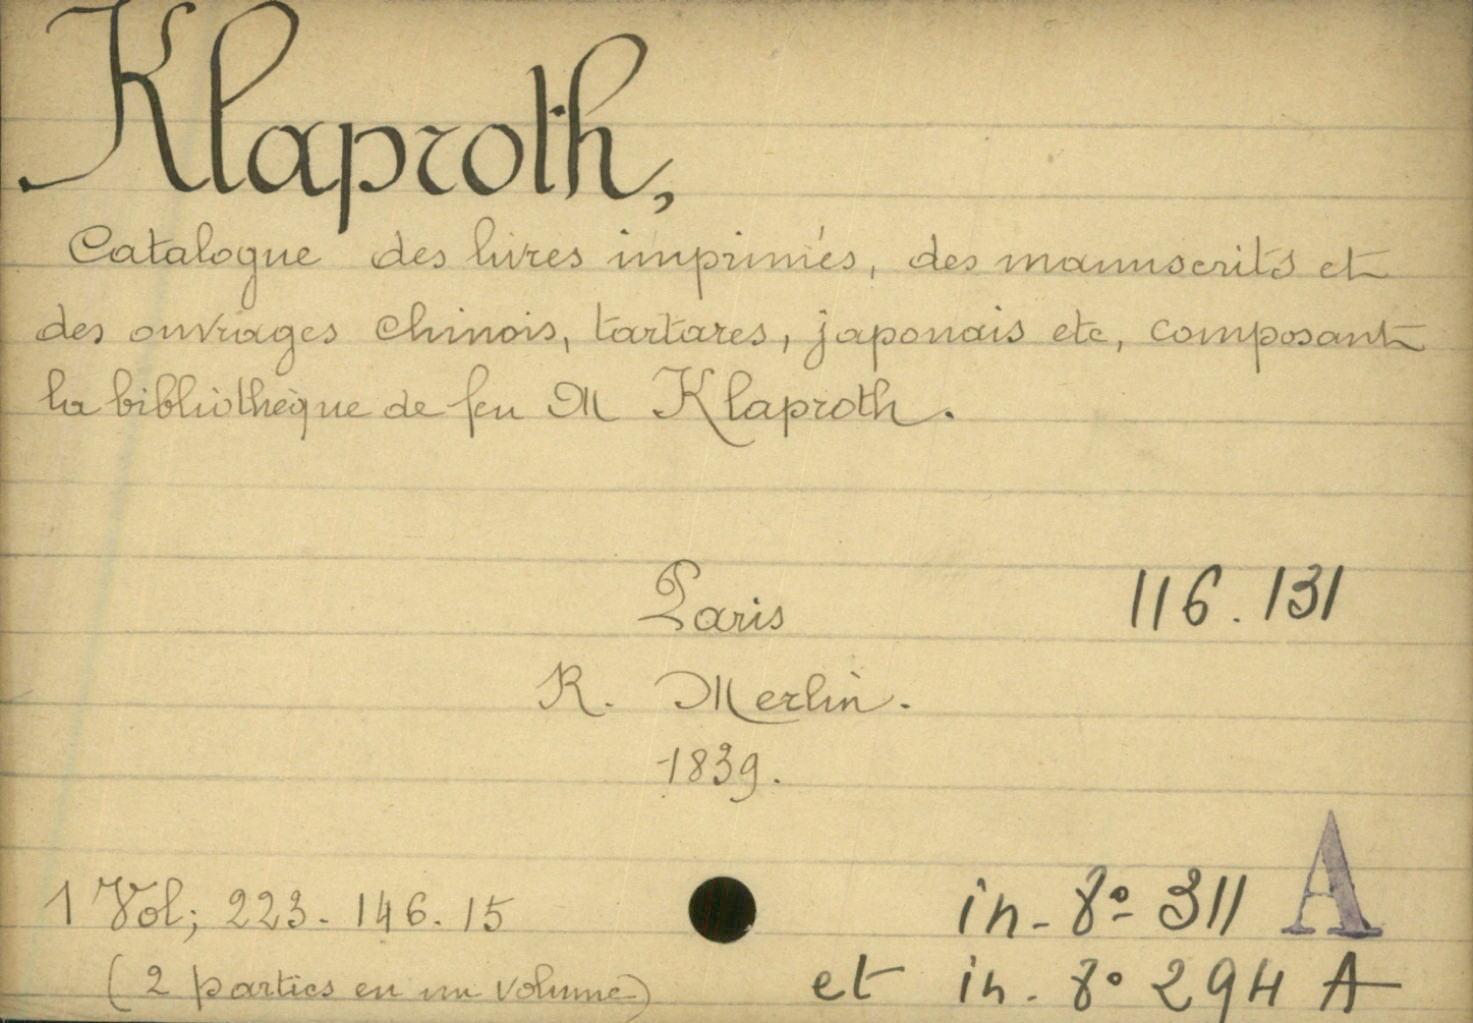 Klaproth,
Catalogue des livres imprimés, des manuscrits et
des ouvrages chinois, tartares, japonais etc, composant
la bibliothèque de feu M Klaproth.
Paris 116.131
R. Merlin.
1839.
1 Vol; 223-146-15 in-8º 311 A
(2 parties en un volume) et in-8º 294 A